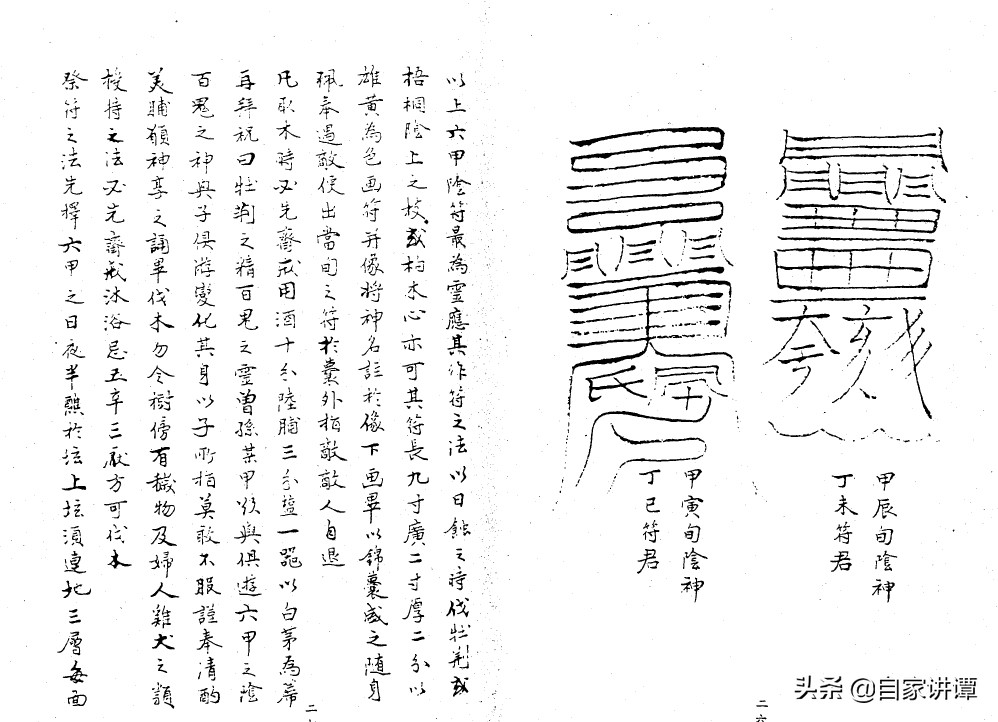 甲辰旬陰神
丁未符君
甲寅旬陰神
丁巳符君
二六
以上六甲陰符最為靈應其作符之法以日蝕之時伐牡荆或
梧桐陰上之枝或枸木心亦可其符長九寸廣二寸厚二分以
雄黃為色画符并像將神名註於像下画畢以錦囊盛之随身
珮奉遇敵便出當旬之符於囊外指敵敵人自退
凡取木時必先齋戒用酒十分陸脯三分塩一器以白茅為藉
再拜祝曰牡荆之精百鬼之靈曾孫某甲欲與俱遊六甲之陰
百鬼之神與子俱游變化其身以子所指莫敢不服謹奉清酌
美脯願神享之誦畢伐木勿令樹傍有穢物及婦人雞犬之類
授持之法必先齋戒沐浴忌五辛三厭方可伐木
祭符之法先擇六甲之日夜半醮於坛上坛須連地三層每面
头条 @自家讲谭